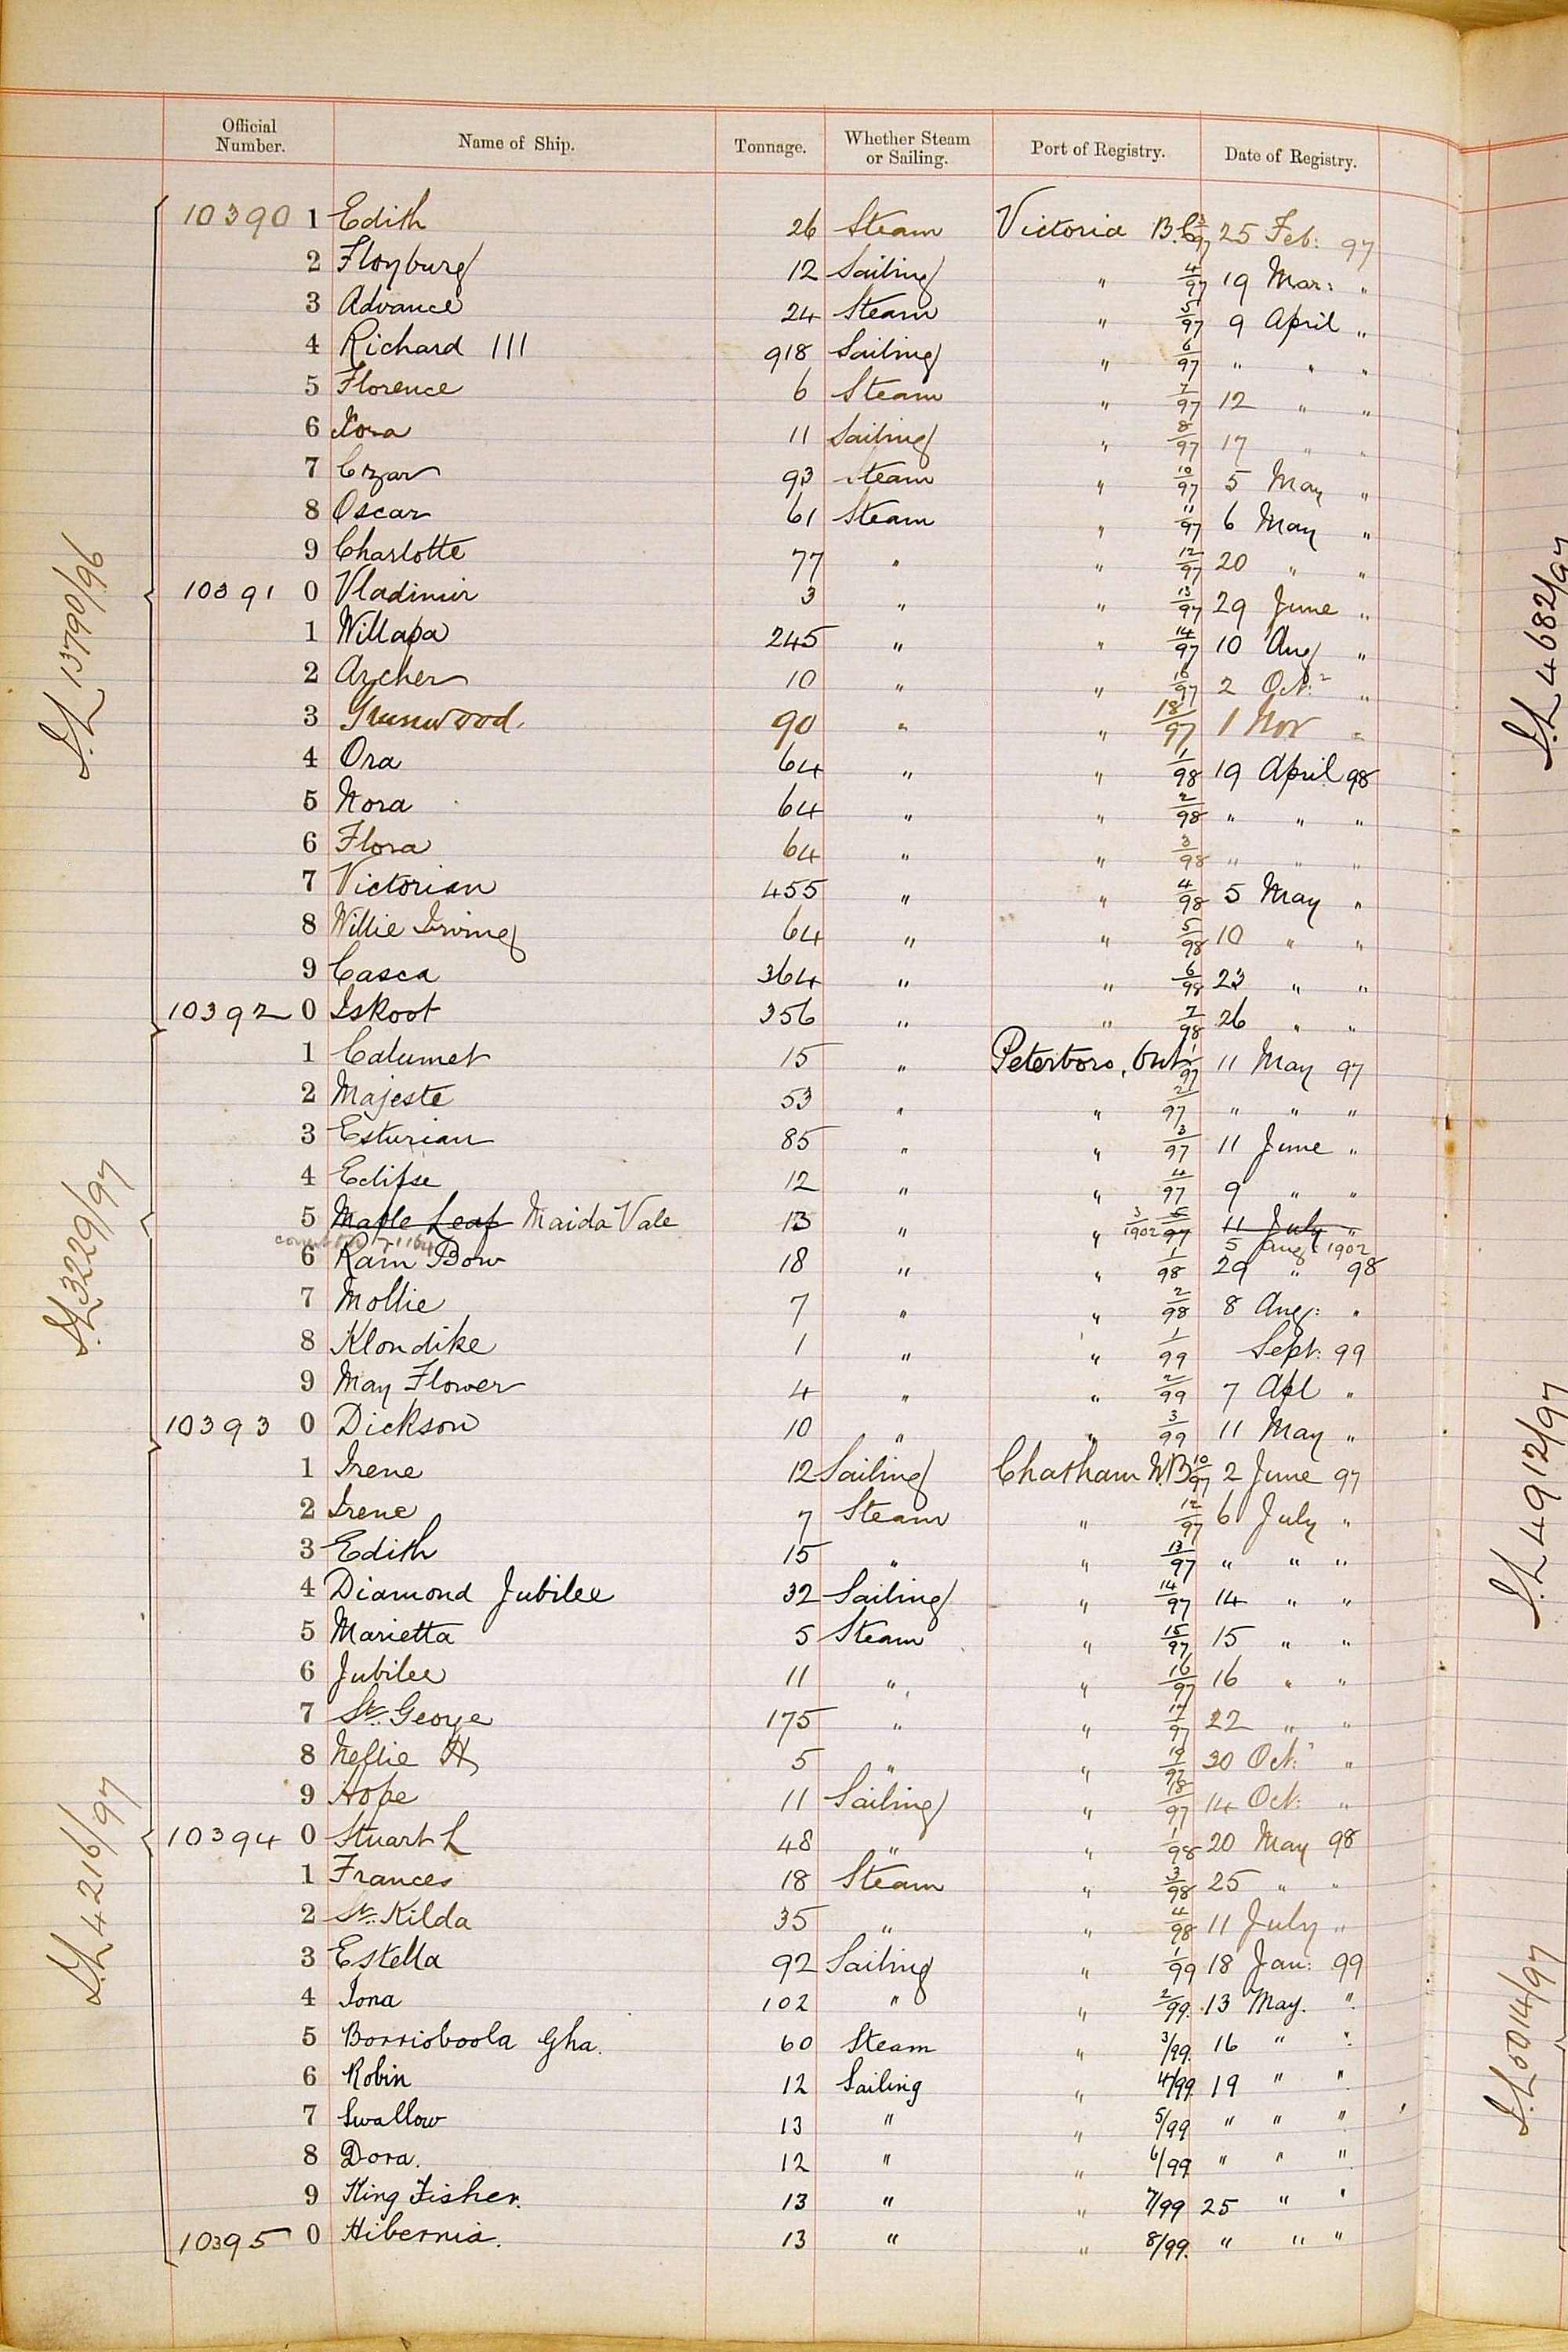 Official Number. Name of Ship. Tonnage. Whether Steam or Sailing. Port of Registry. Date of Registry.
10390 1 Edith 26 Steam Victoria B.C. 3/97 25 Feb: 97
2 Floyburg 12 Sailing " 4/97 19 Mar: "
3 Advance 24 Steam " 5/97 9 April "
4 Richard III 918 Sailing " 6/97 " " "
5 Florence 6 Steam " 7/97 12 " "
6 11 Sailing " 8/97 17 " "
7 Czar 93 Steam " 10/97 5 May "
8 Oscar 61 Steam " 11/97 6 May "
9 Charlotte 77 " " 12/97 20 " "
10391 0 Vladimir 3 " " 13/97 29 June "
1 Willapa 245 " " 14/97 10 Aug "
2 Archer 10 " " 16/97 2 Oct: "
3 90 " " 18/97 1 Nov "
4 Ora 64 " " 1/98 19 April 98
5 Nora 64 " " 2/98 " " "
6 Flora 64 " " 3/98 " " "
7 Victorian 455 " " 4/98 5 May "
8 Willie Irving 64 " " 5/98 10 " "
9 Casca 364 " " 6/98 23 " "
10392 0 Iskoot 356 " " 7/98 26 " "
1 Calumet 15 " Peterboro, Ont 1/97 11 May 97
2 Majeste 53 " " 2/97 " " "
3 Esturian 85 " " 3/97 11 June "
4 Eclipse 12 " " 4/97 9 " "
5 Maple Leaf Maida Vale 13 " " 3/1902 5/97 11 July "
5 Aug: 1902
6 Rain Bow 18 " " 1/98 29 " 98
7 Mollie 7 " " 2/98 8 Aug: "
8 Klondike 1 " " 1/99 Sept: 99
9 May Flower 4 " " 2/99 7 Apl "
10393 0 Dickson 10 " " 3/99 11 May "
1 Irene 12 Sailing Chatham N.B 10/97 2 June 97
2 Irene 7 Steam " 12/97 6 July "
3 Edith 15 " " 13/97 " " "
4 Diamond Jubilee 32 Sailing " 14/97 14 " "
5 Marietta 5 Steam " 15/97 15 " "
6 Jubilee 11 " " 16/97 16 " "
7 St. George 175 " " 17/97 22 " "
8 Nellie H 5 " " 19/97 30 Oct: "
9 Hope 11 Sailing " 18/97 14 Oct: "
10394 0 Stuart L 48 " " 1/98 20 May 98
1 Frances 18 Steam " 3/98 25 " "
2 St. Kilda 35 " " 4/98 11 July "
3 Estella 92 Sailing " 1/99 18 Jan: 99
4 Iona 102 " " 2/99. 13 May. "
5 Borrioboola Gha. 60 Steam " 3/99. 16 " "
6 Robin 12 Sailing " 4/99. 19 " "
7 Swallow 13 " " 5/99 " " "
8 Dora. 12 " " 6/99 " " "
9 King Fisher. 13 " " 7/99 25 " "
10395 0 Hibernia. 13 " " 8/99. " " "
S.L 13790/96
S.L 3229/97
S.L 4216/97
S.L 4682/97
S.L 4912/97
S.L 5014/97